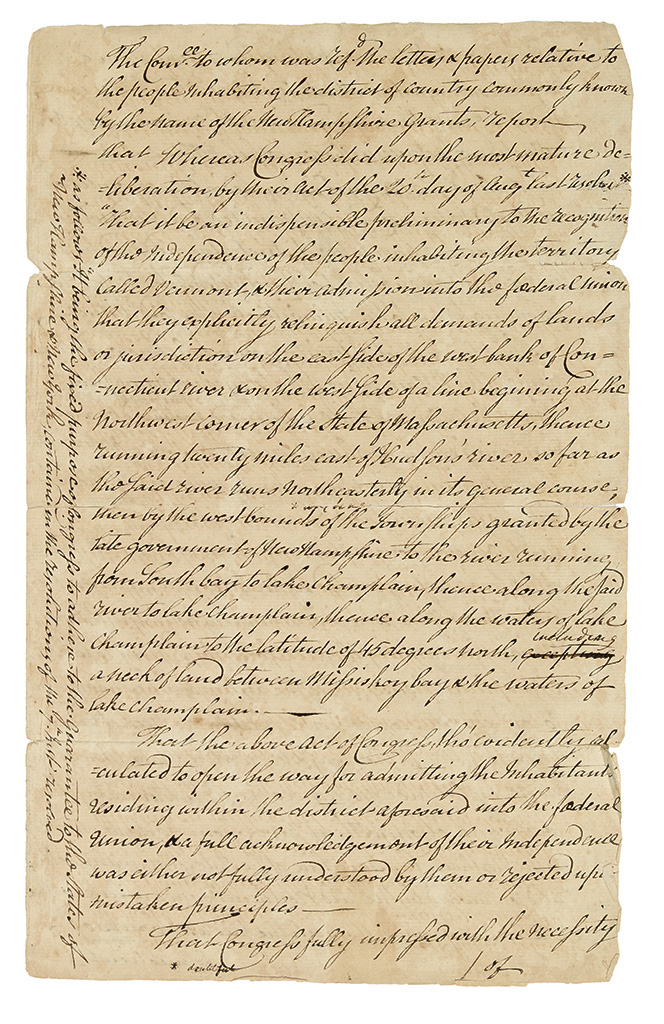 The Com.ee to whom was ref.d the letters & papers relative to
the people inhabiting the district of country commonly known
by the name of the New Hampshire Grants, report
that Whereas Congress did upon the most mature de-
-liberation, by their Act of the 20th day of Augt last resolve *
"That it be an indispensible preliminary to the recognition
of the Independence of the people inhabiting the territory
called Vermont, & their admission into the fœderal union
that they explicitly relinquish all demands of lands
or jurisdiction on the east side of the west bank of Con-
-necticut river & on the west side of a line beginning at the
Northwest corner of the State of Massachusetts, thence
running twenty miles east of Hudson's river so far as
the said river runs Northeasterly in its general course,
then by the west bounds of the Townships granted by the
late government of New Hampshire to the river running
from South bay to lake Champlain, thence along the said
river to lake Champlain, thence along the waters of lake
including
Champlain to the latitude of 45 degrees north, excepting
a neck of land between Missiskoy bay & the waters of
lake Champlain. —
That the above Act of Congress, tho' evidently cal-
-culated to open the way for admitting the Inhabitants
residing within the district aforesaid into the fœderal
Union, & a full acknowledgement of their Independence
was either not fully understood by them or rejected upon
mistaken principles —
That Congress fully impressed with the necessity
* doubtful
/ of
* as follows "It being the fixed purpose of Congress to adhere to the Guarantee to the States of
New Hampshire & New York, contained in the resolutions of the 7th Inst resolved